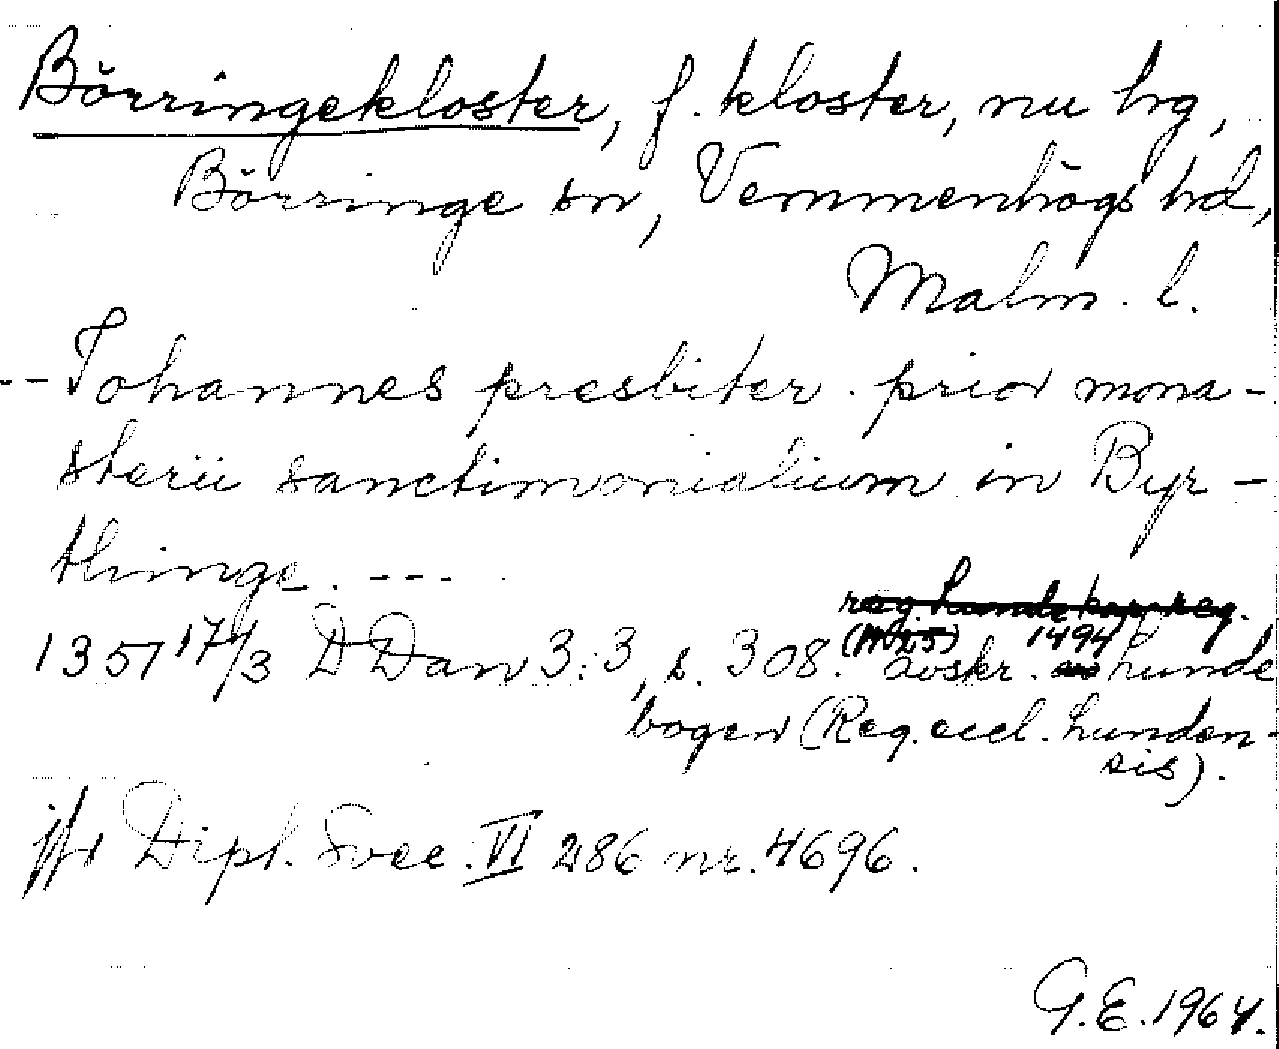 Börringekloster, f. kloster, nu hg,
Börringe sn, Vemmenhögs hd,
Malm. l.
--Johannes presbiter. prior mona-
sterii sanctimonialium in Byr-
thinge. ---
1494
1357 17/3 D Dan 3:3, s. 308. avskr. Lunde
bogen (Reg. eccl. Lunden-
sis).
jfr Dipl. Svec. VI 286 nr. 4696.
G.E. 1964.